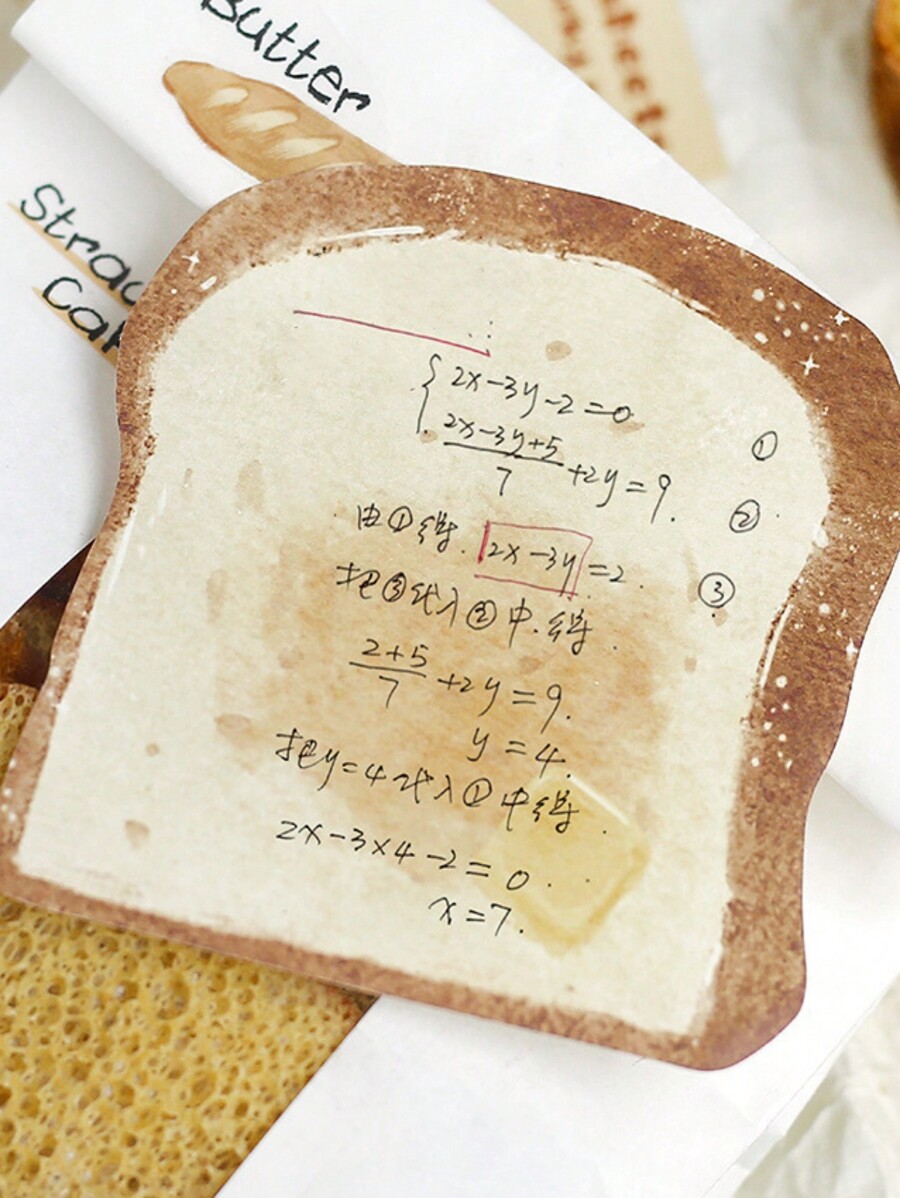 Butter
{ 2x-3y-2=0 ①
(2x-3y+5)/7+2y=9. ②
由①得. 2x-3y=2. ③
把③代入②中.得.
(2+5)/7+2y=9.
y=4.
把y=4代入①中得.
2x-3×4-2=0.
x=7.